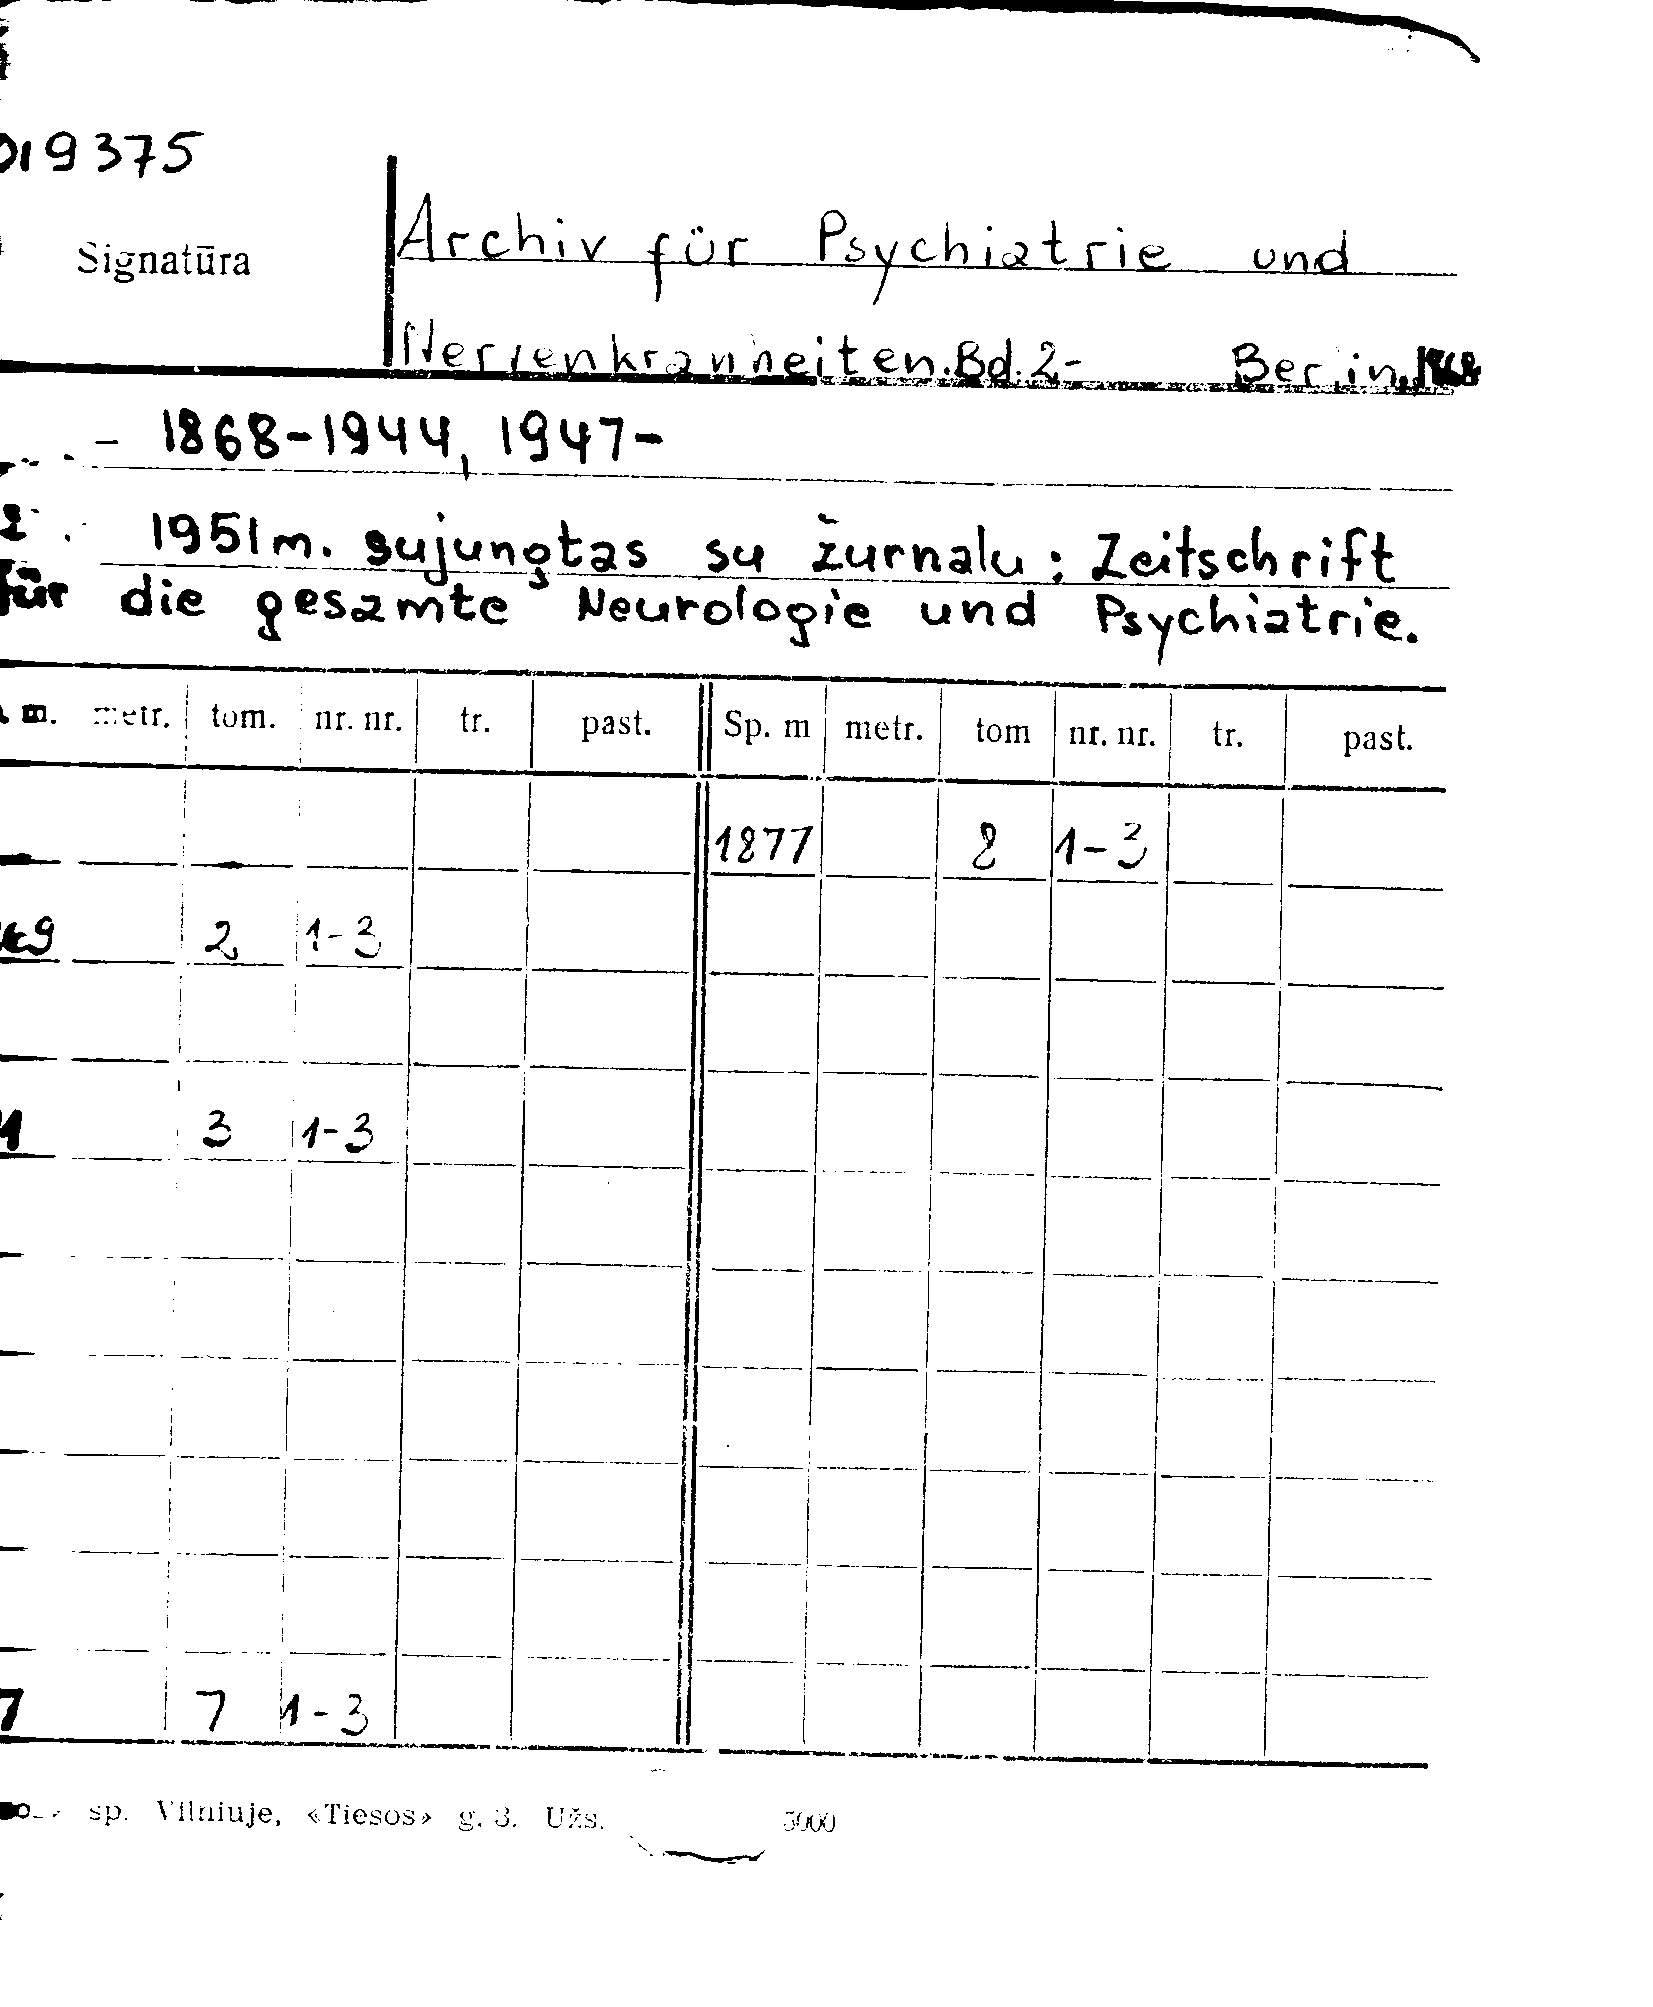 019375
Signatūra
Archiv für Psychiatrie und
Nervenkrankheiten. Bd. 2- Berlin, 1868
- 1868-1944, 1947-
1951 m. sujungtas su žurnalu: Zeitschrift
für die gesamte Neurologie und Psychiatrie.
m. metr. tom. nr. nr. tr. past. Sp. m metr. tom nr. nr. tr. past.
1877 8 1-3
69 2 1-3
1 3 1-3
7 7 1-3
sp. Vilniuje, «Tiesos» g. 3. Užs. 5000